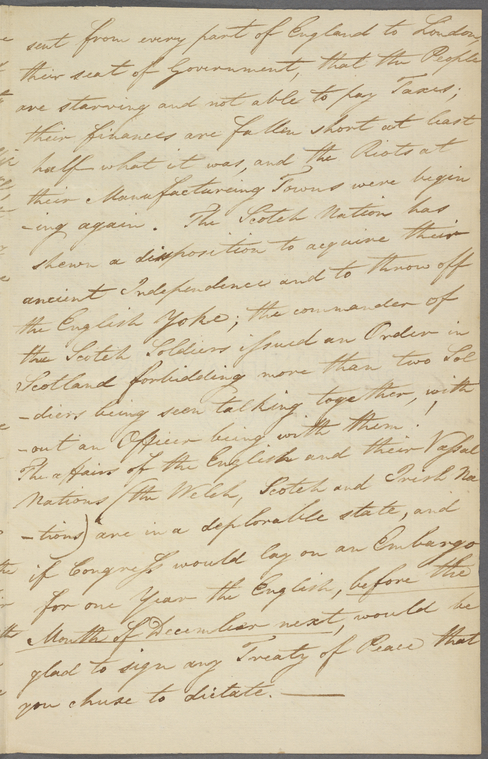 sent from every part of England to London,
their seat of Government, that the People
are starving and not able to pay Taxes;
their finances are fallen short at least
half what it was, and the Riots at
their Manufactureing Towns were begin
-ing again. The Scotch Nation has
shewn a disposition to acquire their
ancient Independence and to throw off
the English Yoke; the commander of
the Scotch Soldiers issued an Order in
Scotland forbidding more than two Sol
-diers being seen talking together, with
-out an Officer being with them!
The affairs of the English and their Vassal
Nations (the Welch, Scotch and Irish Na
-tions) are in a deplorable state, and
if Congress would lay on an Embargo
for one Year the English, before the
Month of December next, would be
glad to sign any Treaty of Peace that
you chuse to dictate.